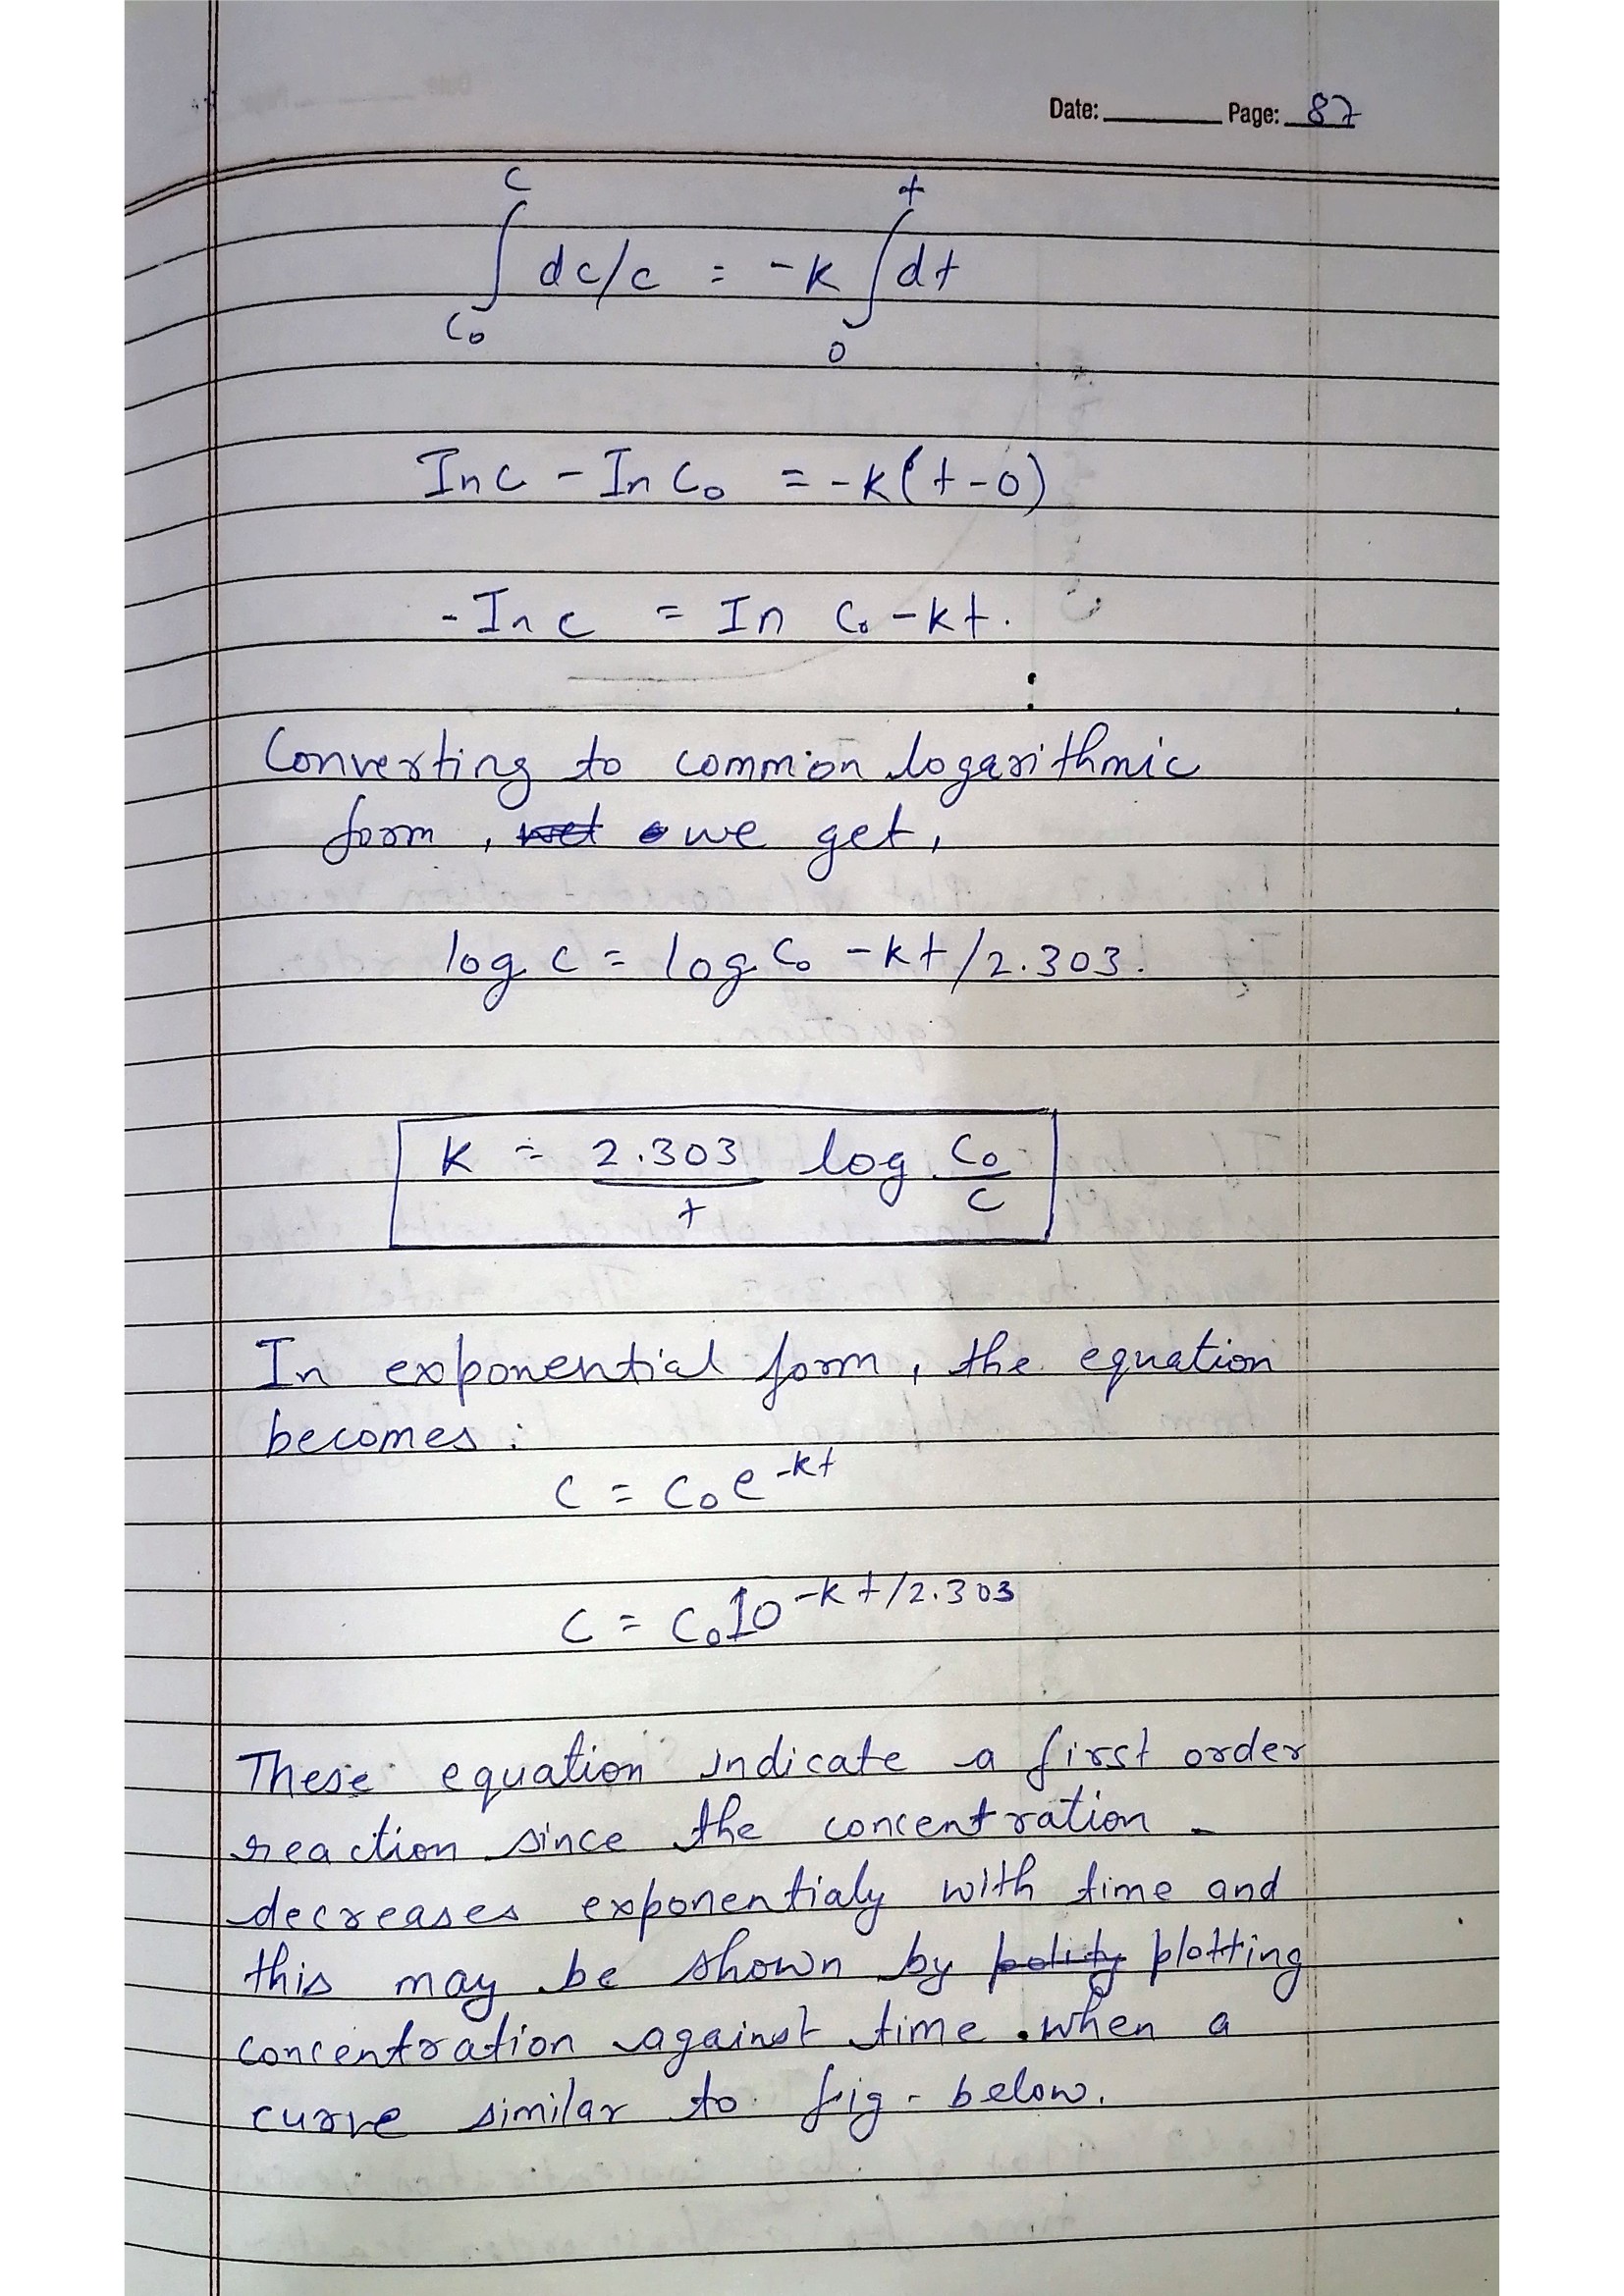 Date: Page: 87
∫_{C₀}^{C} dc/c = -K ∫_{0}^{t} dt
In C - In C₀ = -K(t-0)
- In c = In C₀ - Kt.
Converting to common logarithmic
form, we get,
log C = log C₀ - Kt/2.303.
K = 2.303/t log C₀/C
In exponential form, the equation
becomes :
C = C₀e^{-Kt}
C = C₀10^{-Kt/2.303}
These equation indicate a first order
reaction since the concentration
decreases exponentialy with time and
this may be shown by plotting
concentration against time. when a
curve similar to fig - below.